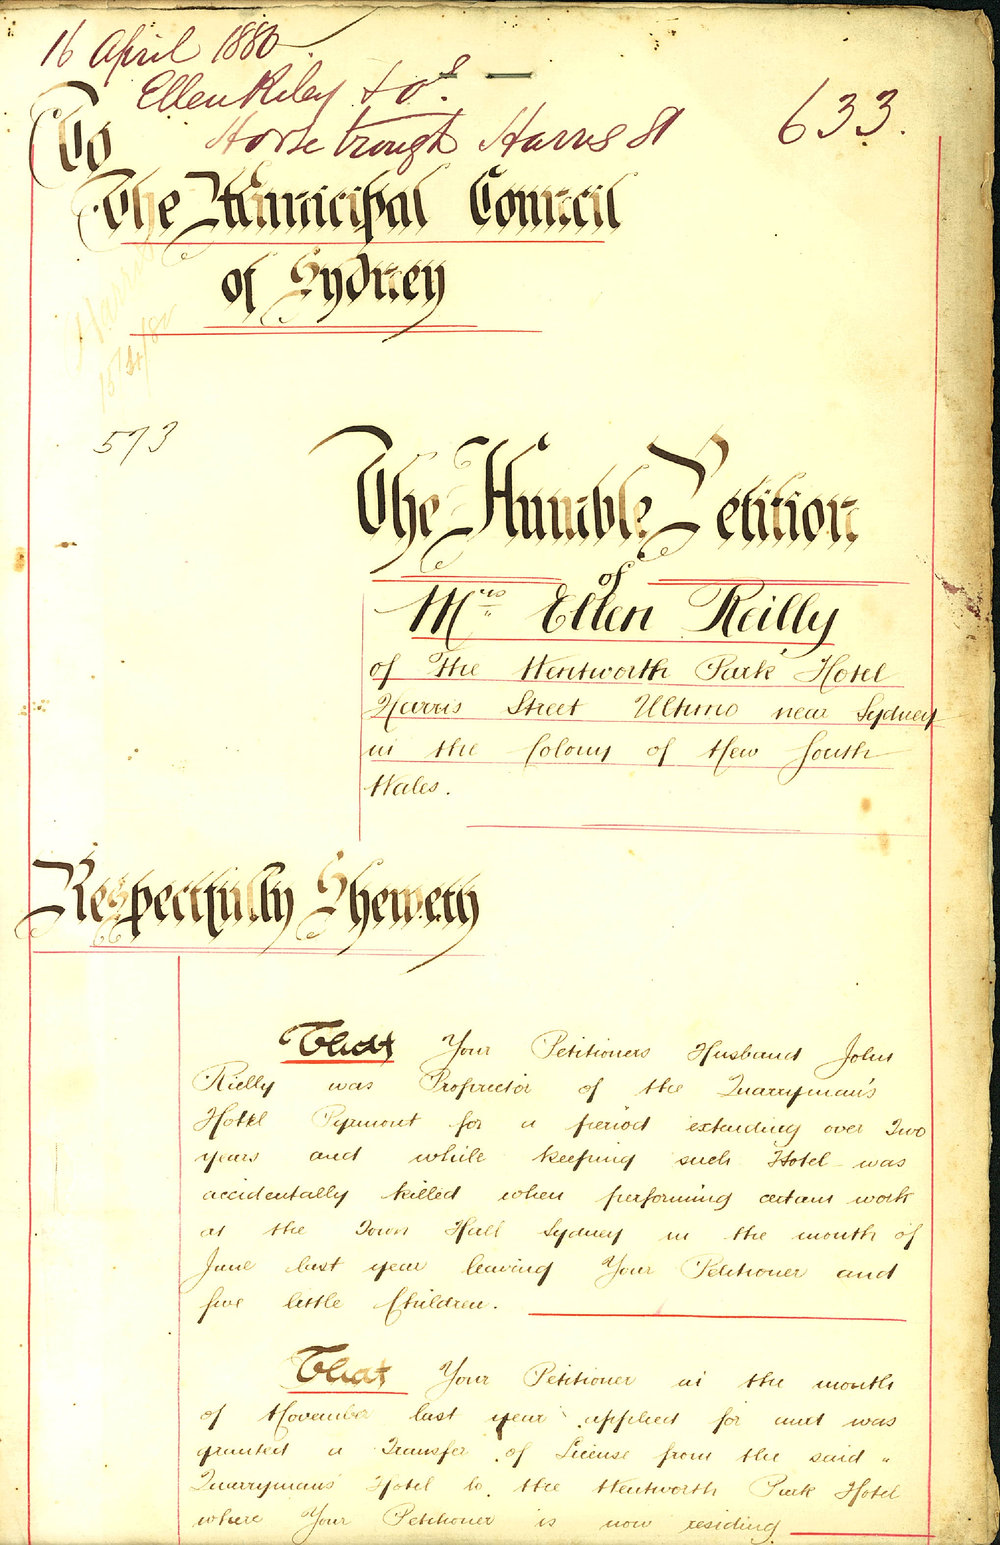 16 April 1880
Ellen Riley & ors
Horse trough Harris St
633.
To
The Municipal Council
of Sydney
Harris
15/4/80
573
The Humble Petition
of
Mrs Ellen Reilly
of The Wentworth Park Hotel
Harris Street Ultimo near Sydney
in the Colony of New South
Wales.
Respectfully Sheweth
That Your Petitioners Husband John
Rielly was Proprietor of the Quarryman's
Hotel Pyrmont for a period extending over Two
years and while keeping such Hotel was
accidentally killed when performing certain work
at the Town Hall Sydney in the month of
June last year leaving Your Petitioner and
five little Children.
That Your Petitioner in the month
of November last year applied for and was
granted a Transfer of License from the said
Quarrymans' Hotel to the Wentworth Park Hotel
where Your Petitioner is now residing